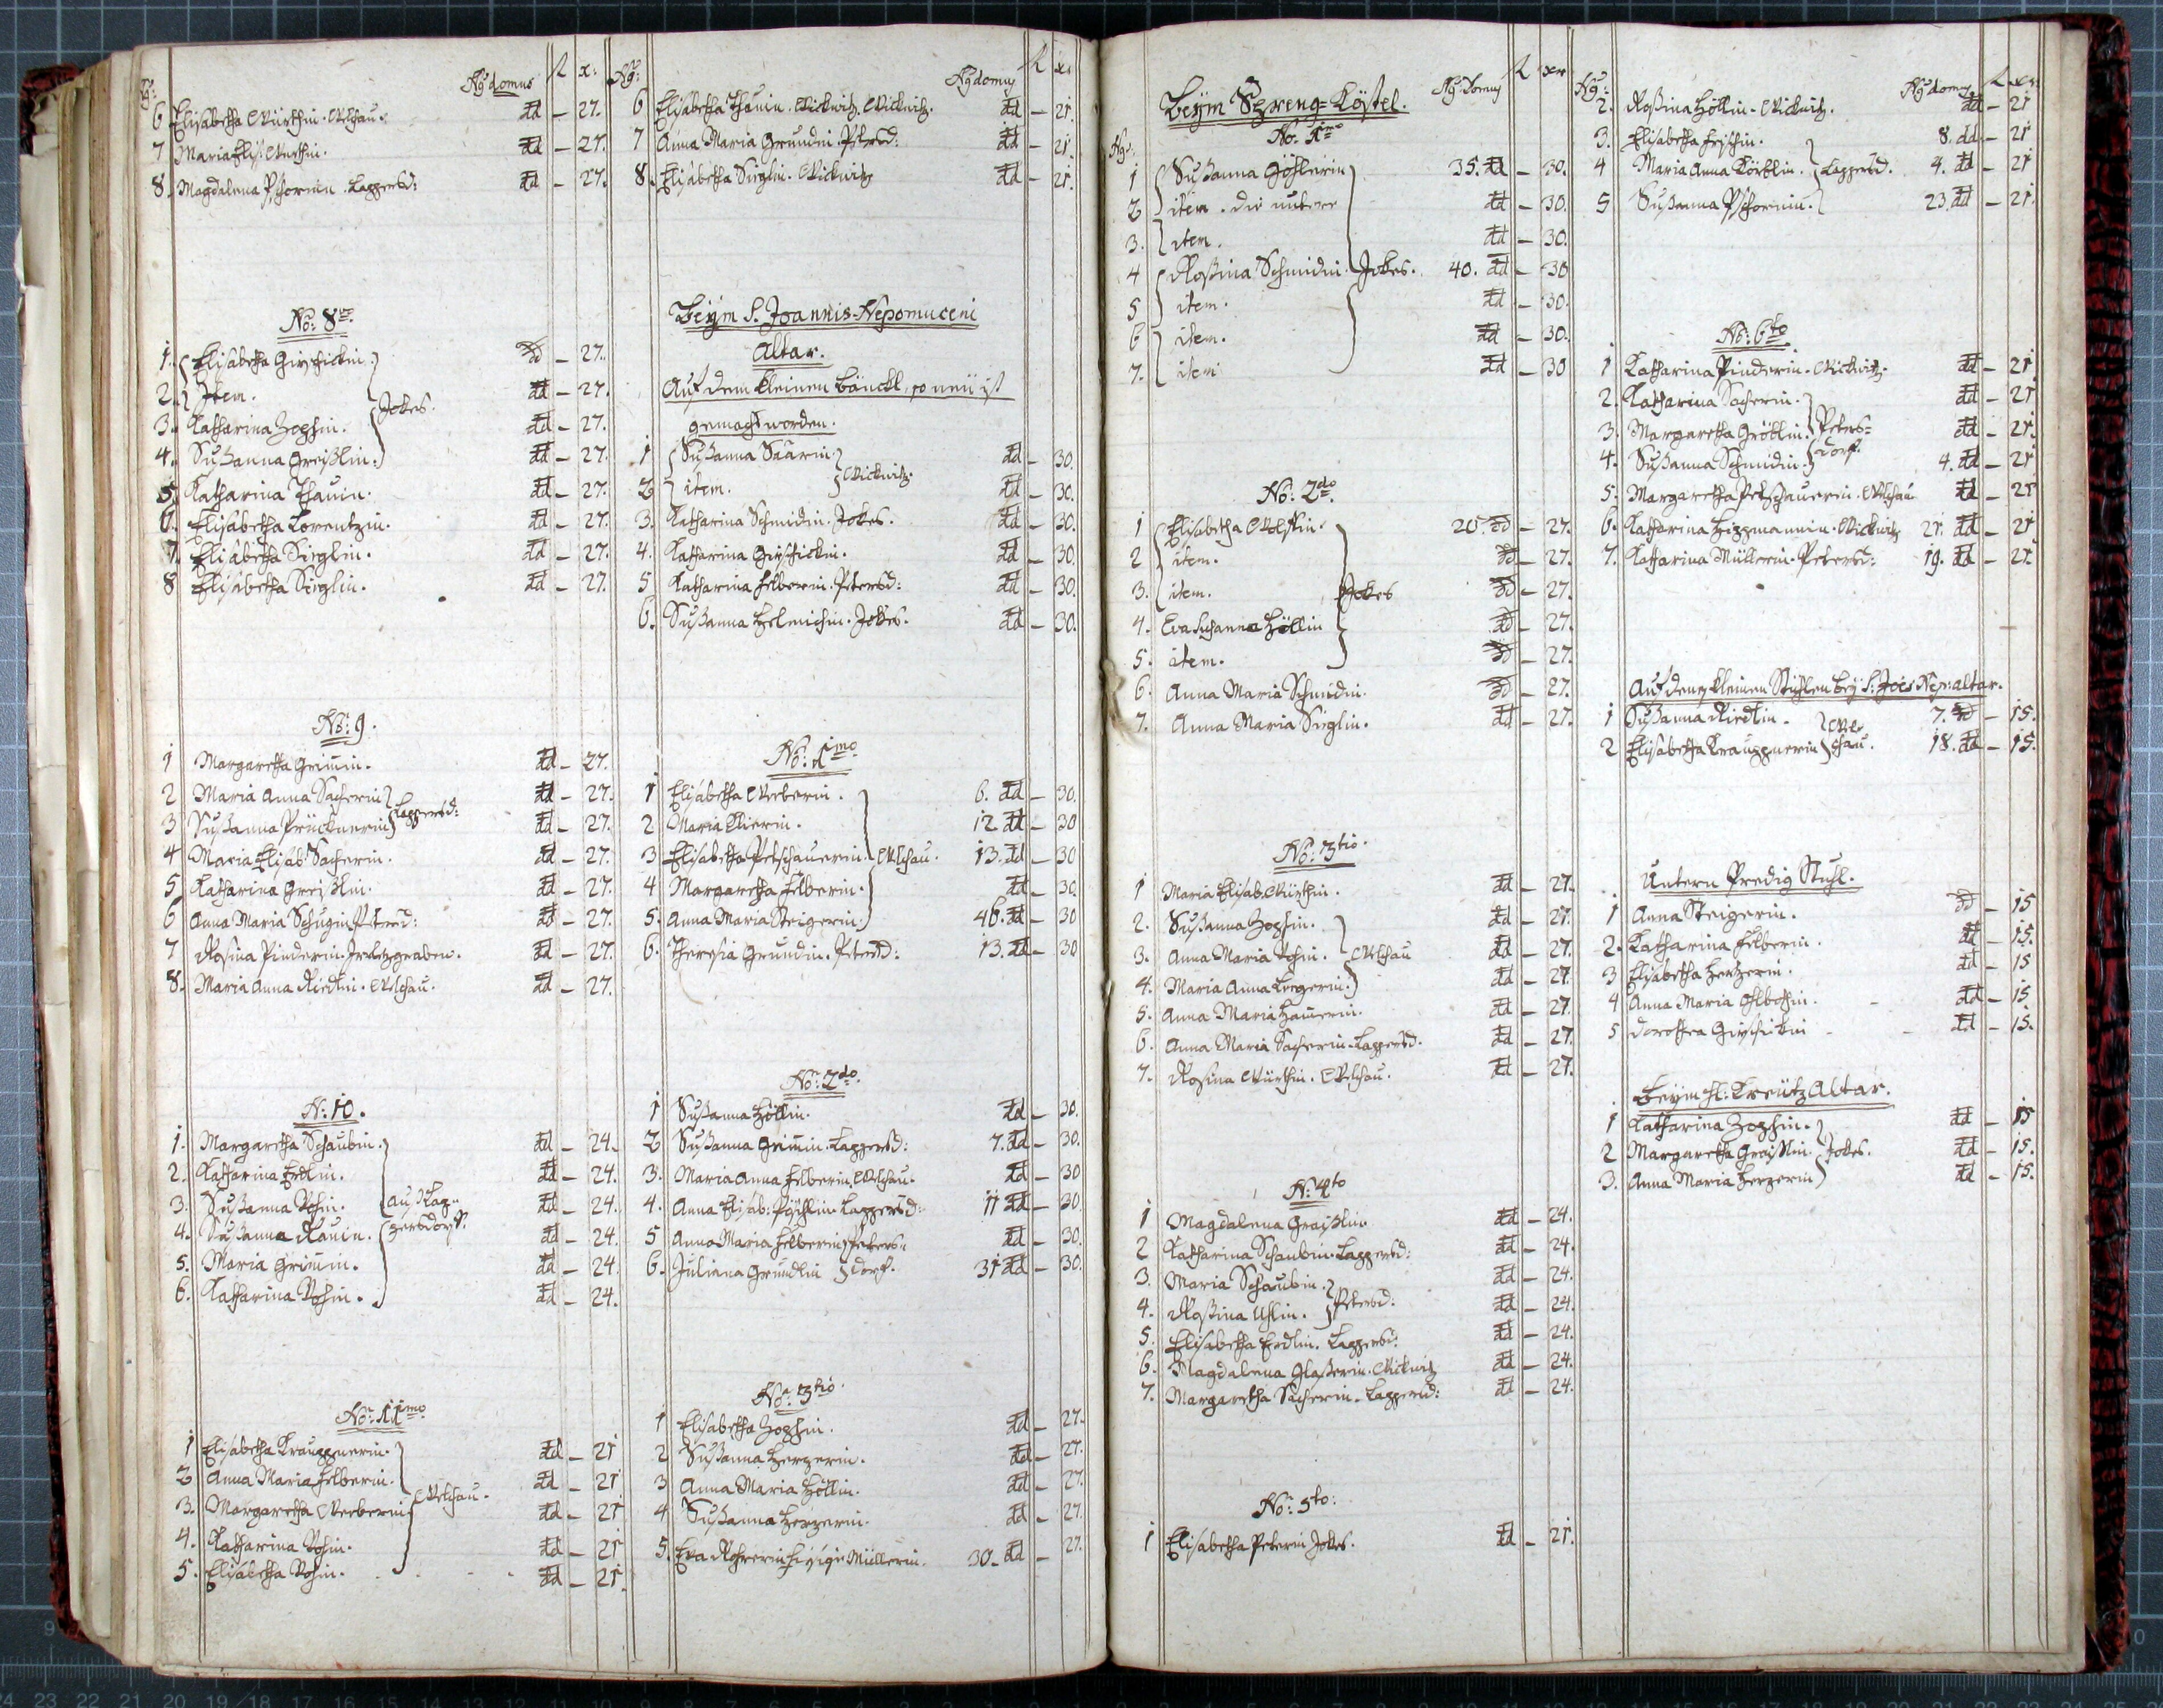 No domus fl x:
6 Elisabetha Würthin. Welchau. dd – 27.
7 Maria Elis: Wurthin. dd – 27.
8. Magdalena Pschornin. Lappersd: dd – 27.
No: 8vo
1. Elisabetha Girschickin. dd – 27.
2. Item. Jokes. dd – 27.
3. Katharina Zophin. dd – 27.
4. Sußanna Greißlin. dd – 27.
5. Katharina Thauin. dd – 27.
6. Elisabetha Lorentzin. dd – 27.
7. Elisabetha Sieglin. dd – 27.
8 Elisabetha Sieglin. dd – 27.
No: 9.
1 Margaretha Grimin. dd – 27.
2 Maria Anna Sacherin dd – 27.
3 Sußanna Prücknerin Lappersd: dd – 27.
4 Maria Elisab: Sacherin. dd – 27.
5 Katharina Greißlin. dd – 27.
6 Anna Maria Schugin Petersd: dd – 27.
7 Rosina Pinderin. dd – 27.
8. Maria Anna Riedlin. Welchau. dd – 27.
No: 10.
1. Margaretha Schaubin. dd – 24.
2. Katharina Erdlin. dd – 24.
3. Sußanna Pohin. auß Lap= dd – 24.
4. Sußanna Rauin. persdorf. dd – 24.
5. Maria Grimin. dd – 24.
6. Katharina Pohin. dd – 24.
No: 11mo
1 Elisabetha Krauppnerin. dd – 21
2 Anna Maria Felberin. dd – 21
3. Margaretha Weeberin Welchau. dd – 21
4. Katharina Pohin. dd – 21
5. Elisabetha Pohin. dd – 21.
No: No domus fl xr
6 Elisabetha Thauin. Wickwitz. Wickwitz. dd – 21.
7 Anna Maria Grundin. Petersd: dd – 21.
8. Elisabetha Sieglin. Wickwitz dd – 21.
Beÿm S. Joannis Nepomuceni
Altar.
Auf dem kleinen Bänckl, so neü ist
gemacht worden.
1 Sußanna Säärin. dd – 30.
2 item. Wickwitz. dd – 30.
3. Katharina Schmidin. Jokes. dd – 30.
4. Katharina Girschickin. dd – 30.
5 Katharina Felberin. Petersd: dd – 30.
6. Sußanna Helmichin. Jokes. dd – 30.
No: 1mo
1 Elisabetha Weeberin. 6. dd – 30.
2 Maria 12 dd – 30
3 Elisabetha Petschauerin. Welchau. 13. dd – 30
4 Margaretha Felberin. dd – 30.
5. Anna Maria Steigerin. 46. dd – 30
6. Theresia Grundin. Petersd: 13. dd – 30
No: 2do.
1 Sußanna Höllin. dd – 30.
2 Sußanna Grimin. Lappersd: 7. dd – 30.
3. Maria Anna Felberin. Welchau. dd – 30
4. Anna Elisab: Pöschlin. Lappersd: 11 dd – 30
5 Anna Maria Felberin Peters= dd – 30.
6. Juliana Grundlin dorf. 31 dd – 30.
No: 3tio.
1 Elisabetha Zophin. dd – 27.
2 Sußanna Herzerin. dd – 27.
3 Anna Maria Höllin. dd – 27.
4 Sußanna Herzerin. dd – 27.
5. Eva Rohrerin hisige Müllerin. 30. dd – 27.
Beÿm Spreng=Köstel. No Domus fl xr
No: 1mo
1 Sußanna Göhlerin 35. dd – 30.
2 item. die untere dd – 30.
3. item. dd – 30.
4 Roßina Schmidin. Jokes. 40. dd – 30
5 item. dd – 30.
6 item. dd – 30.
7. item dd – 30
No: 2do.
1 Elisabetha 20. dd – 27.
2 item. dd – 27.
3. item. Jokes dd – 27.
4. Eva Susanna Höllin dd – 27.
5. item. dd – 27.
6. Anna Maria Schmidin. dd – 27.
7. Anna Maria Sieglin. dd – 27.
No: 3tio.
1 Maria Elisab: Würthin. dd – 27.
2. Sußanna Zophin. dd – 27.
3. Anna Maria Pohin. Welchau dd – 27.
4. Maria Anna dd – 27.
5. Anna Maria Hauerin. dd – 27.
6. Anna Maria Sacherin. Lappersd. dd – 27.
7. Rosina Würthin. Welchau. dd – 27.
No: 4to
1 Magdalena Greißlin. dd – 24.
2 Katharina Schaubin. Lappersd: dd – 24.
3. Maria Schaubin. dd – 24.
4. Roßina Uhlin. Petersd: dd – 24.
5. Elisabetha Erdlin. Lappersd: dd – 24.
6. Magdalena Glaßerin. Wickwitz dd – 24.
7. Margaretha Sacherin. Lappersd: dd – 24.
No: 5to:
1 Elisabetha Peterin Jokes. dd – 21.
No: No domus fl xr
2. Roßina Höllin. Wickwitz. dd – 21
3. Elisabetha 8. dd – 21
4 Maria Anna Körblin. Lappersd. 4. dd – 21
5 Sußanna Pschornin. 23. dd – 21.
No: 6to
1 Katharina Pinderin. Wickwitz. dd – 21
2. Katharina Sacherin. dd – 21
3. Margaretha Gröblin. Peters= dd – 21.
4. Sußanna Schmidin. dorf. 4. dd – 21
5. Margaretha Petschauerin. Welchau dd – 21
6. Katharina Hippmannin. Wickwitz 21. dd – 21
7. Katharina Müllerin. Petersd: 19. dd – 21.
Auf denen kleinen Stühlen bey S: Jois Nep: altar.
1 Sußanna Riedlin. Wel= 7. dd – 15.
2 Elisabetha Krauppnerin chau. 18. dd – 15.
Untern Predig Stuhl.
1 Anna Steigerin. dd – 15
2. Katharina Felberin. dd – 15.
3 Elisabetha Herzerin. dd – 15
4 Anna Maria dd – 15
5 Dorothea Girschickin dd – 15.
Beÿm H: Kreütz Altar.
1 Katharina Zophin. dd – 15
2 Margaretha Greißlin. Jokes. dd – 15.
3. Anna Maria Herzerin dd – 15.